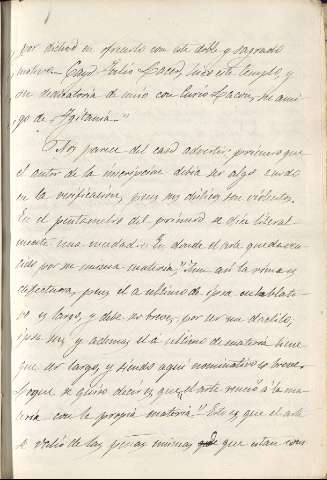 por dichoso en ofrecerlo con este doble y sagrado
motivo.- Cayo Julio Lacer, hizo este templo, y
su dedicatoria de unió con Curio Lacon, su ami-
go de Igitania."
Nos parece del caso advertir: primero que
el autor de la inscripcion debia ser algo rudo
en la versificación, pues sus dísticos son violentos.
En el pentámetro del primero se dice literal-
mente una necedad: En donde el arte queda ven-
cido por su misma materia,
y pues el a ultimo de ipsa es ablati-
vo y largo, y debe ser breve, por ser un dactilo,
ipse su; y ademas el a ultimo de materia tiene
que ser largo, y siendo aquí nominativo es breve.
Lo que se quiso decir es que, el arte venció á la ma-
teria con la propia materia." Esto es, que el arte
se valió de las peñas mismas que estan con